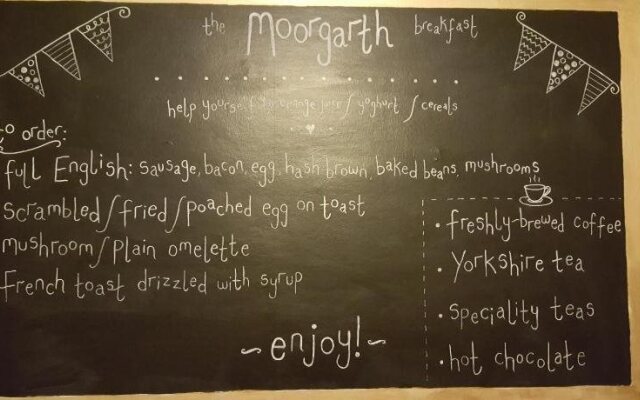 the Moorgarth breakfast
help yourself to orange juice / yoghurt / cereals
to order:
full English: sausage, bacon, egg, hash brown, baked beans, mushrooms
scrambled/fried/poached egg on toast
mushroom/plain omelette
french toast drizzled with syrup
~ enjoy! ~
• freshly-brewed coffee
• Yorkshire tea
• speciality teas
• hot chocolate